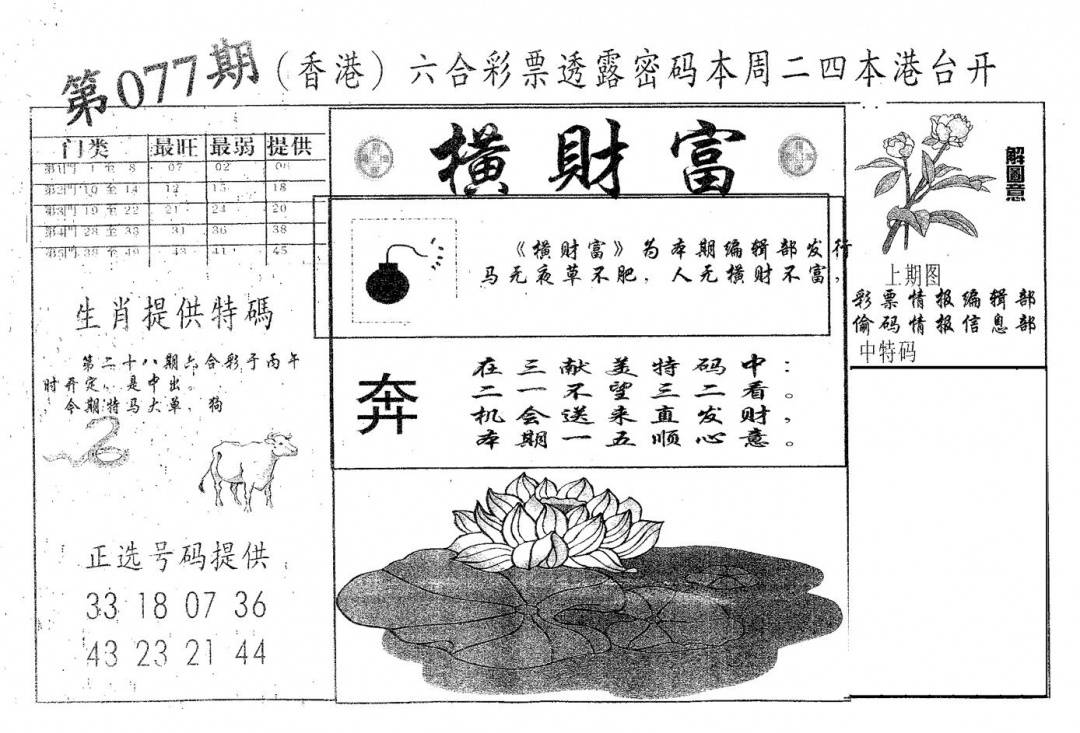 第077期（香港）六合彩票透露密码本周二四本港台开
门类 最旺 最弱 提供
第1门 1 至 8 07 02 06
第2门 10 至 14 12 15 18
第3门 19 至 22 21 24 20
第4门 28 至 33 31 36 38
第5门 38 至 49 43 41 45
生肖提供特碼
第二十八期六合彩于丙午
时开定，是中出。
，令期特马大单，狗
正选号码提供
33 18 07 36
43 23 21 44
橫財富
《橫财富》为本期编辑部发行
马无夜草不肥，人无橫财不富，
奔
在三献美特码中：
二一不望三二看。
机会送来直发财，
本期一五顺心意。
解圖意
上期图
彩票情报编辑部
偷码情报信息部
中特码